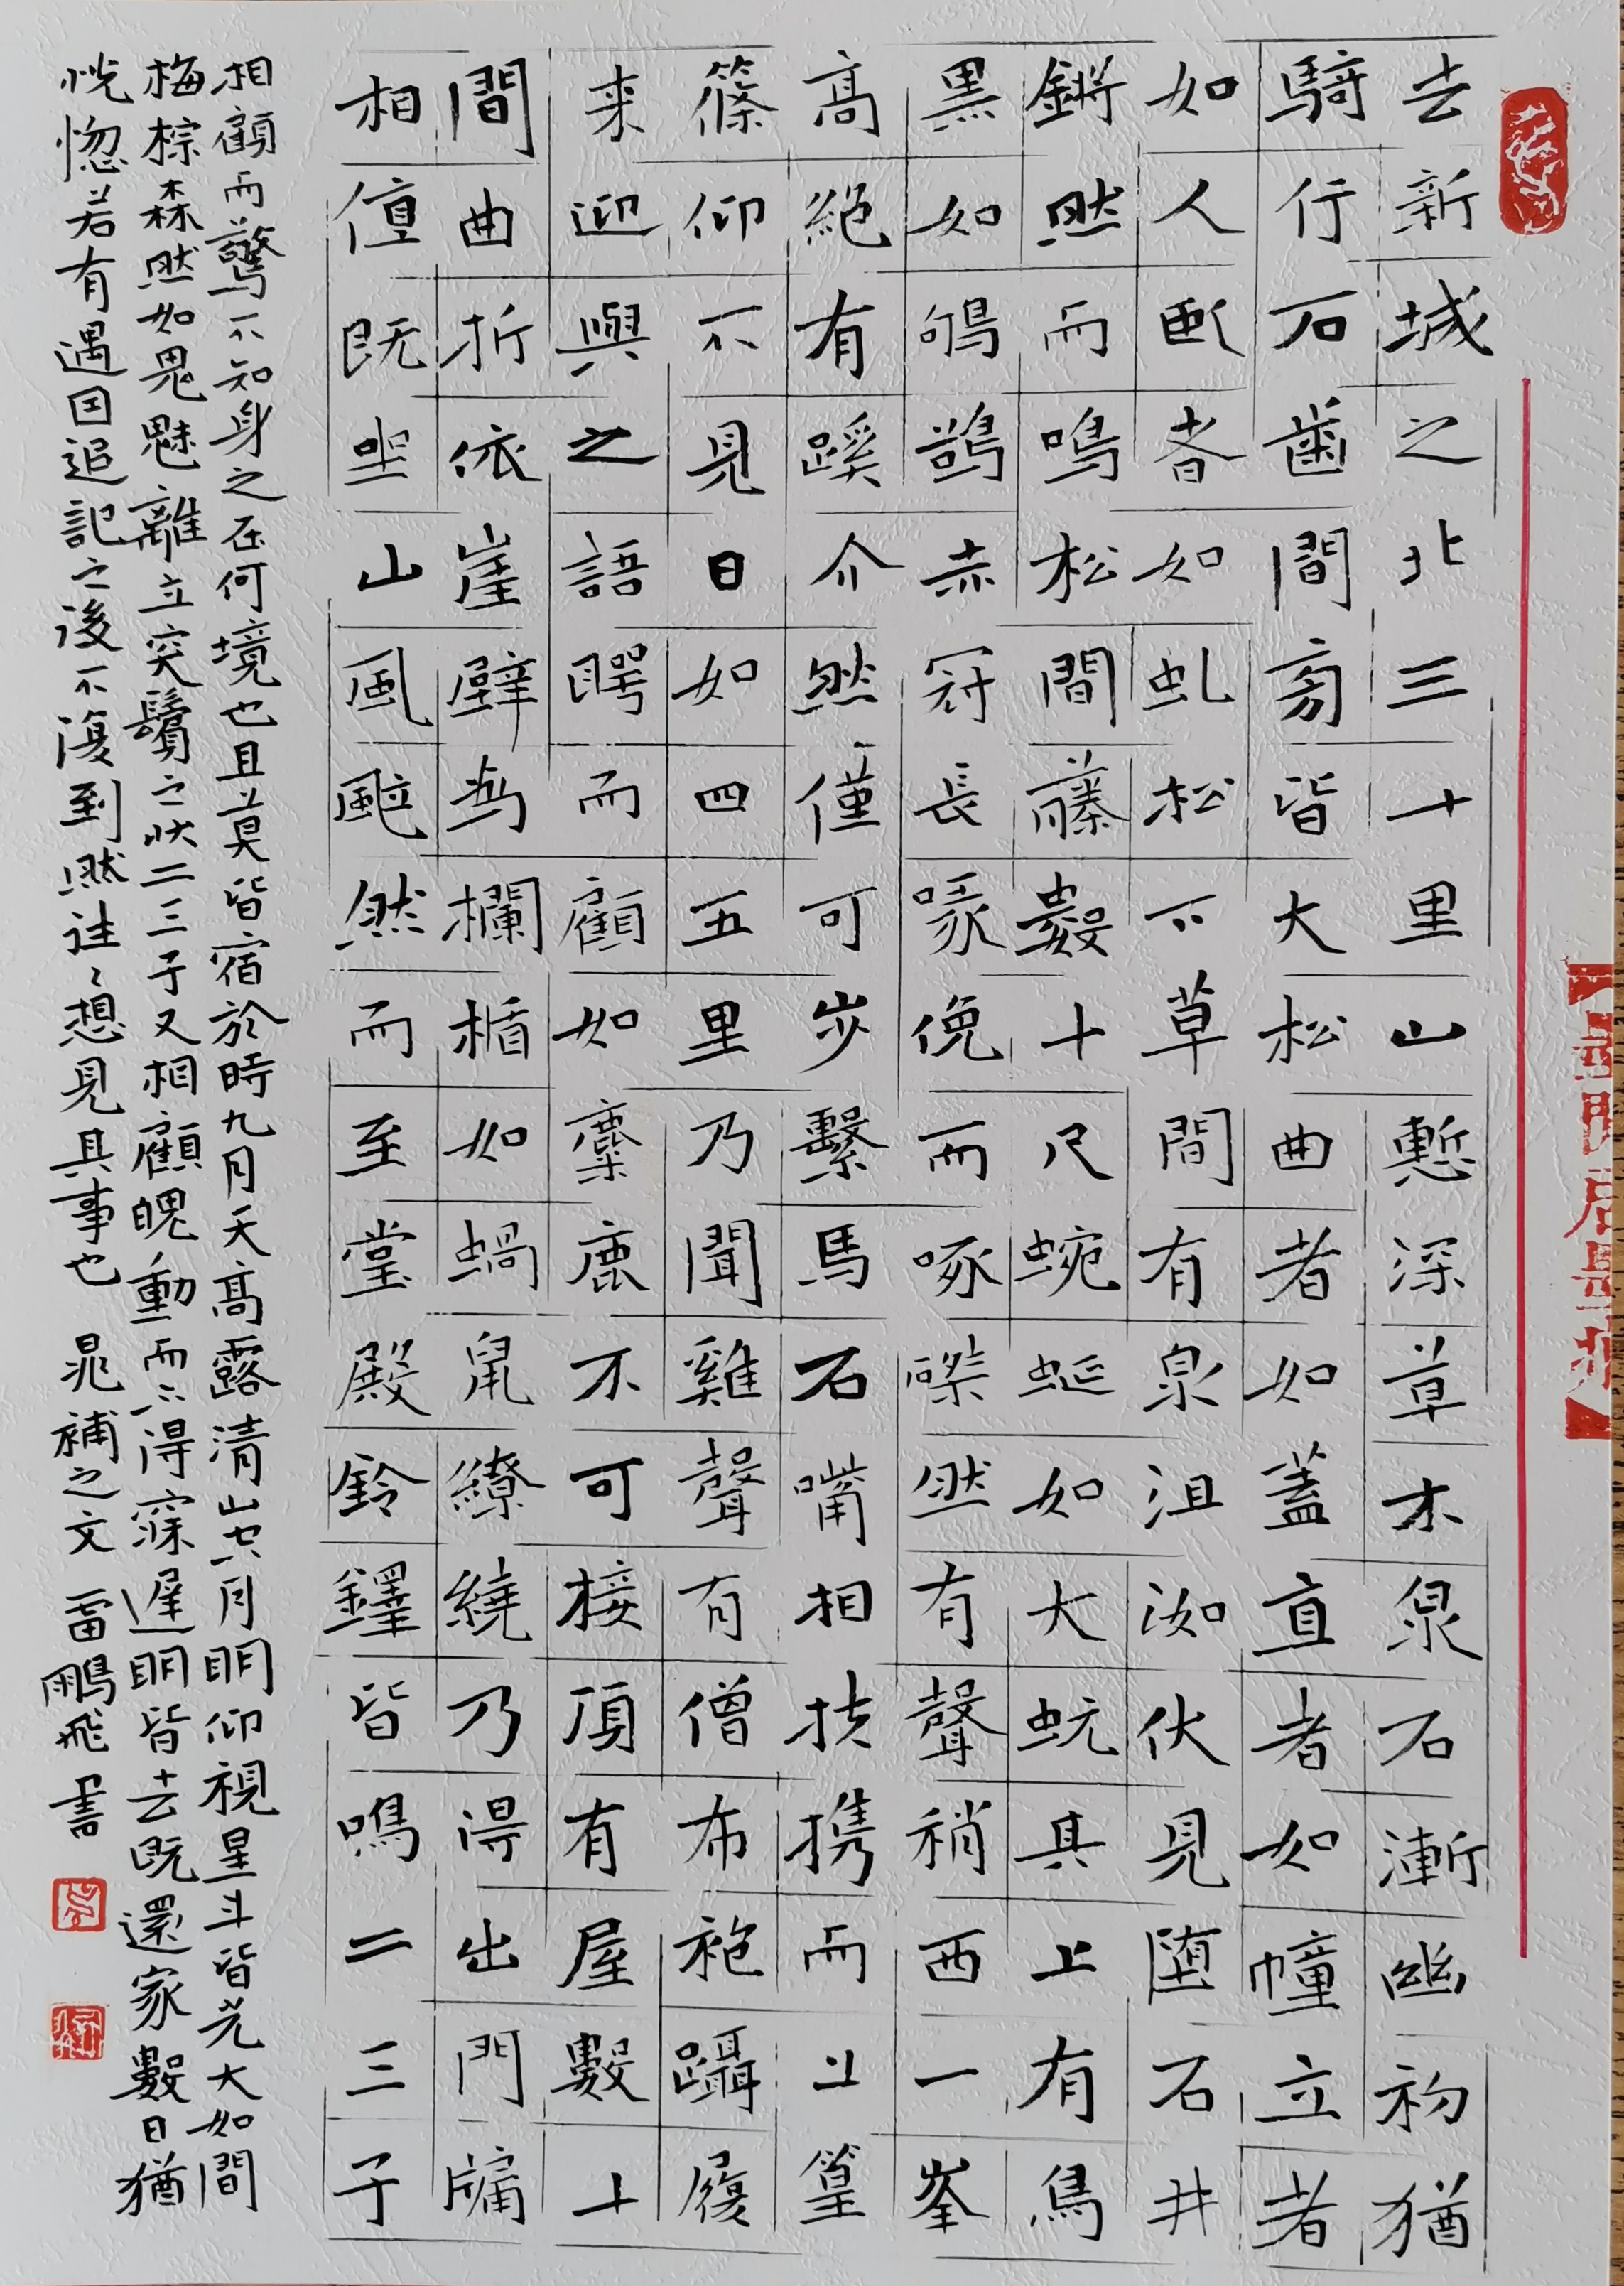 去新城之北三十里山慙深草木泉石漸幽初猶
騎行石齒間旁皆大松曲者如蓋直者如幢立者
如人臥者如虬松下草間有泉沮洳伏見墮石井
鏘然而鳴松間藤數十尺蜿蜒如大蚖其上有鳥
黑如鴝鵒赤冠長喙俛而啄磔然有聲稍西一峯
高絕有蹊介然僅可步繫馬石嘴相扶携而上篁
篠仰不見日如四五里乃聞雞聲有僧布袍躡履
來迎與之語瞪而顧如麋鹿不可接頂有屋數十
間曲折依崖壁為欄楯如蝸鼠繚繞乃得出門牖
相值既坐山風颯然而至堂殿鈴鐸皆鳴二三子
相顧而驚不知身之在何境也且莫皆宿於時九月天高露清山空月明仰視星斗皆光大如間
梅棕森然如鬼魅離立突鬢之狀二三子又相顧魄動而不得寐遲明皆去既還家數日猶
恍惚若有遇因追記之後不復到然往〻想見其事也 晁補之文 雷鵬飛書